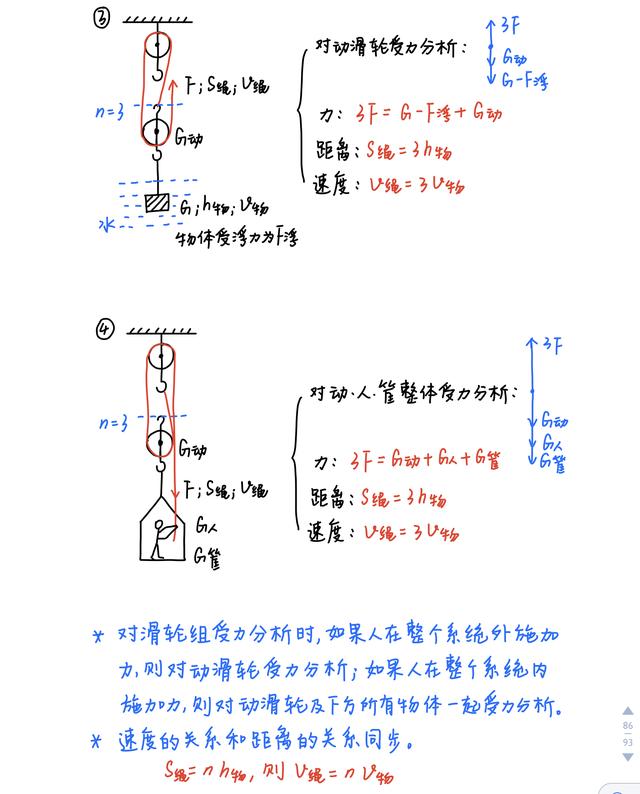 ③
对动滑轮受力分析：
3F
G动
G-F浮
F；S绳；V绳
n=3
G动
力：3F=G-F浮+G动
距离：S绳=3h物
速度：V绳=3V物
G；h物；V物
水
物体受浮力为F浮
④
3F
对动、人、筐整体受力分析：
n=3
G动
G动
G人
G筐
力：3F=G动+G人+G筐
F；S绳；V绳
距离：S绳=3h物
G人
速度：V绳=3V物
G筐
* 对滑轮组受力分析时，如果人在整个系统外施加
力，则对动滑轮受力分析；如果人在整个系统内
施加力，则对动滑轮及下方所有物体一起受力分析。
* 速度的关系和距离的关系同步。
S绳=nh物，则V绳=nV物
86
93